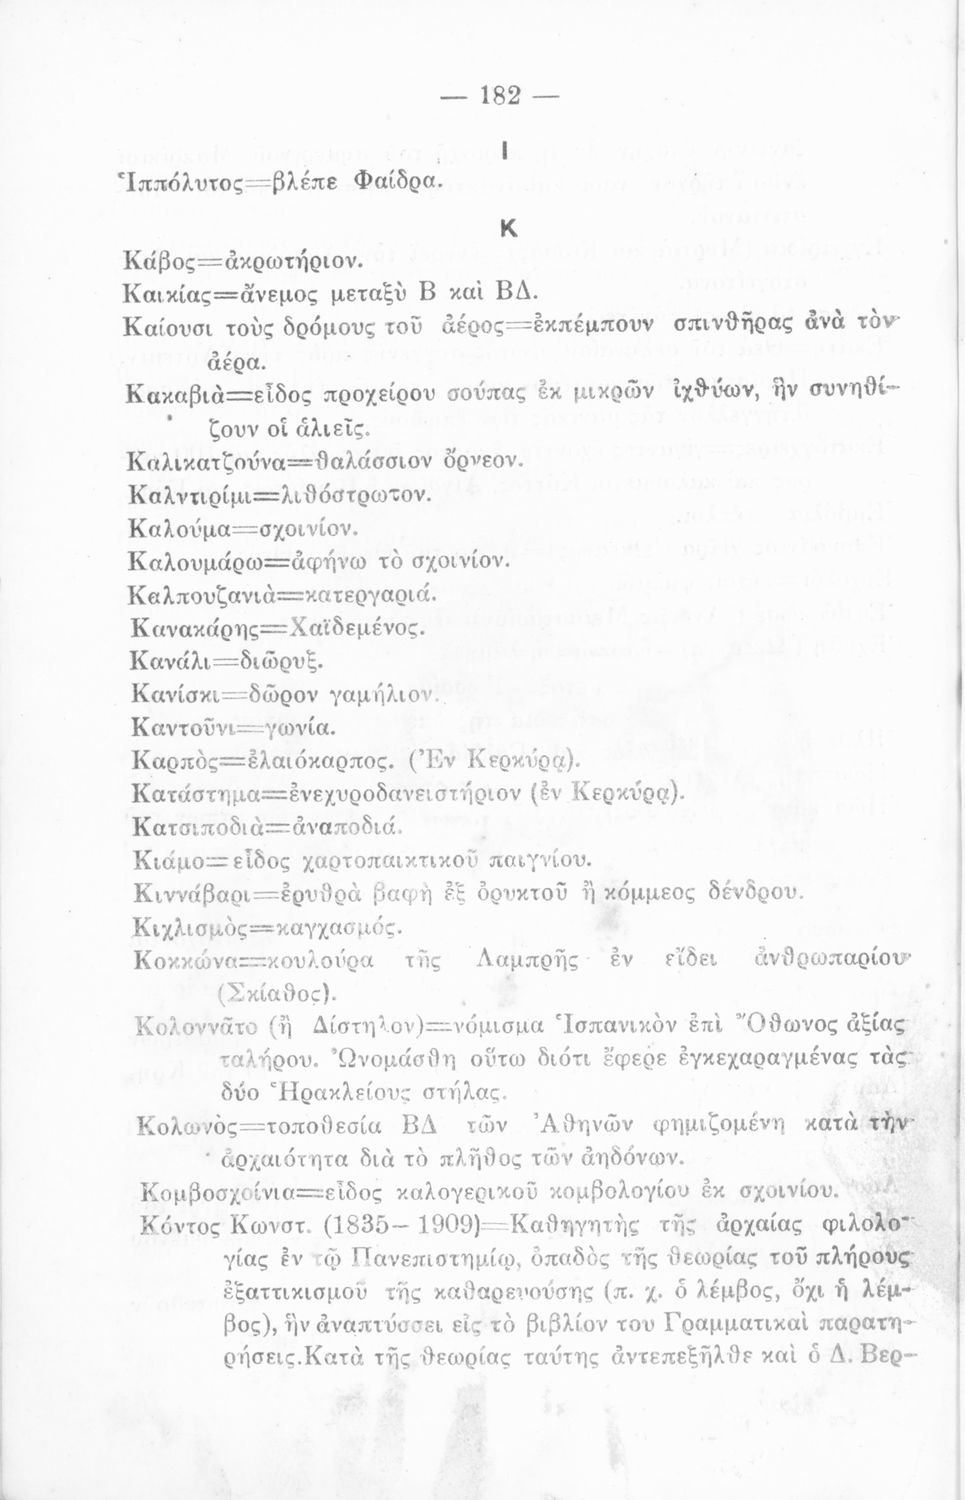 — 182 —
Ι
Ἱππόλυτος=βλέπε Φαίδρα.
Κ
Κάβος=ἀκρωτήριον.
Καικίας=ἄνεμος μεταξὺ Β καὶ ΒΔ.
Καίουσι τοὺς δρόμους τοῦ ἀέρος=ἐκπέμπουν σπινθῆρας ἀνὰ τὸν
ἀέρα.
Κακαβιὰ=εἶδος προχείρου σούπας ἐκ μικρῶν ἰχθύων, ἣν συνηθί-
ζουν οἱ ἁλιεῖς.
Καλικατζούνα=θαλάσσιον ὄρνεον.
Καλντιρίμι=λιθόστρωτον.
Καλούμα=σχοινίον.
Καλουμάρω=ἀφήνω τὸ σχοινίον.
Καλπουζανιὰ=κατεργαριά.
Κανακάρης=Χαϊδεμένος.
Κανάλι=διῶρυξ.
Κανίσκι=δῶρον γαμήλιον.
Καντοῦνι=γωνία.
Καρπὸς=ἐλαιόκαρπος. (Ἐν Κερκύρᾳ).
Κατάστημα=ἐνεχυροδανειστήριον (ἐν Κερκύρᾳ).
Κατσιποδιὰ=ἀναποδιά.
Κιάμο=εἶδος χαρτοπαικτικοῦ παιγνίου.
Κιννάβαρι=ἐρυθρὰ βαφὴ ἐξ ὀρυκτοῦ ἢ κόμμεος δένδρου.
Κιχλισμὸς=καγχασμός.
Κοκκώνα=κουλούρα τῆς Λαμπρῆς ἐν εἴδει ἀνθρωπαρίου
(Σκίαθος).
Κολοννᾶτο (ἢ Δίστηλον)=νόμισμα Ἱσπανικὸν ἐπὶ Ὄθωνος ἀξίας
ταλήρου. Ὠνομάσθη οὕτω διότι ἔφερε ἐγκεχαραγμένας τὰς
δύο Ἡρακλείους στήλας.
Κολωνὸς=τοποθεσία ΒΔ τῶν Ἀθηνῶν φημιζομένη κατὰ τὴν
ἀρχαιότητα διὰ τὸ πλῆθος τῶν ἀηδόνων.
Κομβοσχοίνια=εἶδος καλογερικοῦ κομβολογίου ἐκ σχοινίου.
Κόντος Κωνστ. (1835— 1909)=Καθηγητὴς τῆς ἀρχαίας φιλολο-
γίας ἐν τῷ Πανεπιστημίῳ, ὀπαδὸς τῆς θεωρίας τοῦ πλήρους
ἐξαττικισμοῦ τῆς καθαρευούσης (π. χ. ὁ λέμβος, ὄχι ἡ λέμ-
βος), ἣν ἀναπτύσσει εἰς τὸ βιβλίον του Γραμματικαὶ παρατη-
ρήσεις.Κατὰ τῆς θεωρίας ταύτης ἀντεπεξῆλθε καὶ ὁ Δ. Βερ-